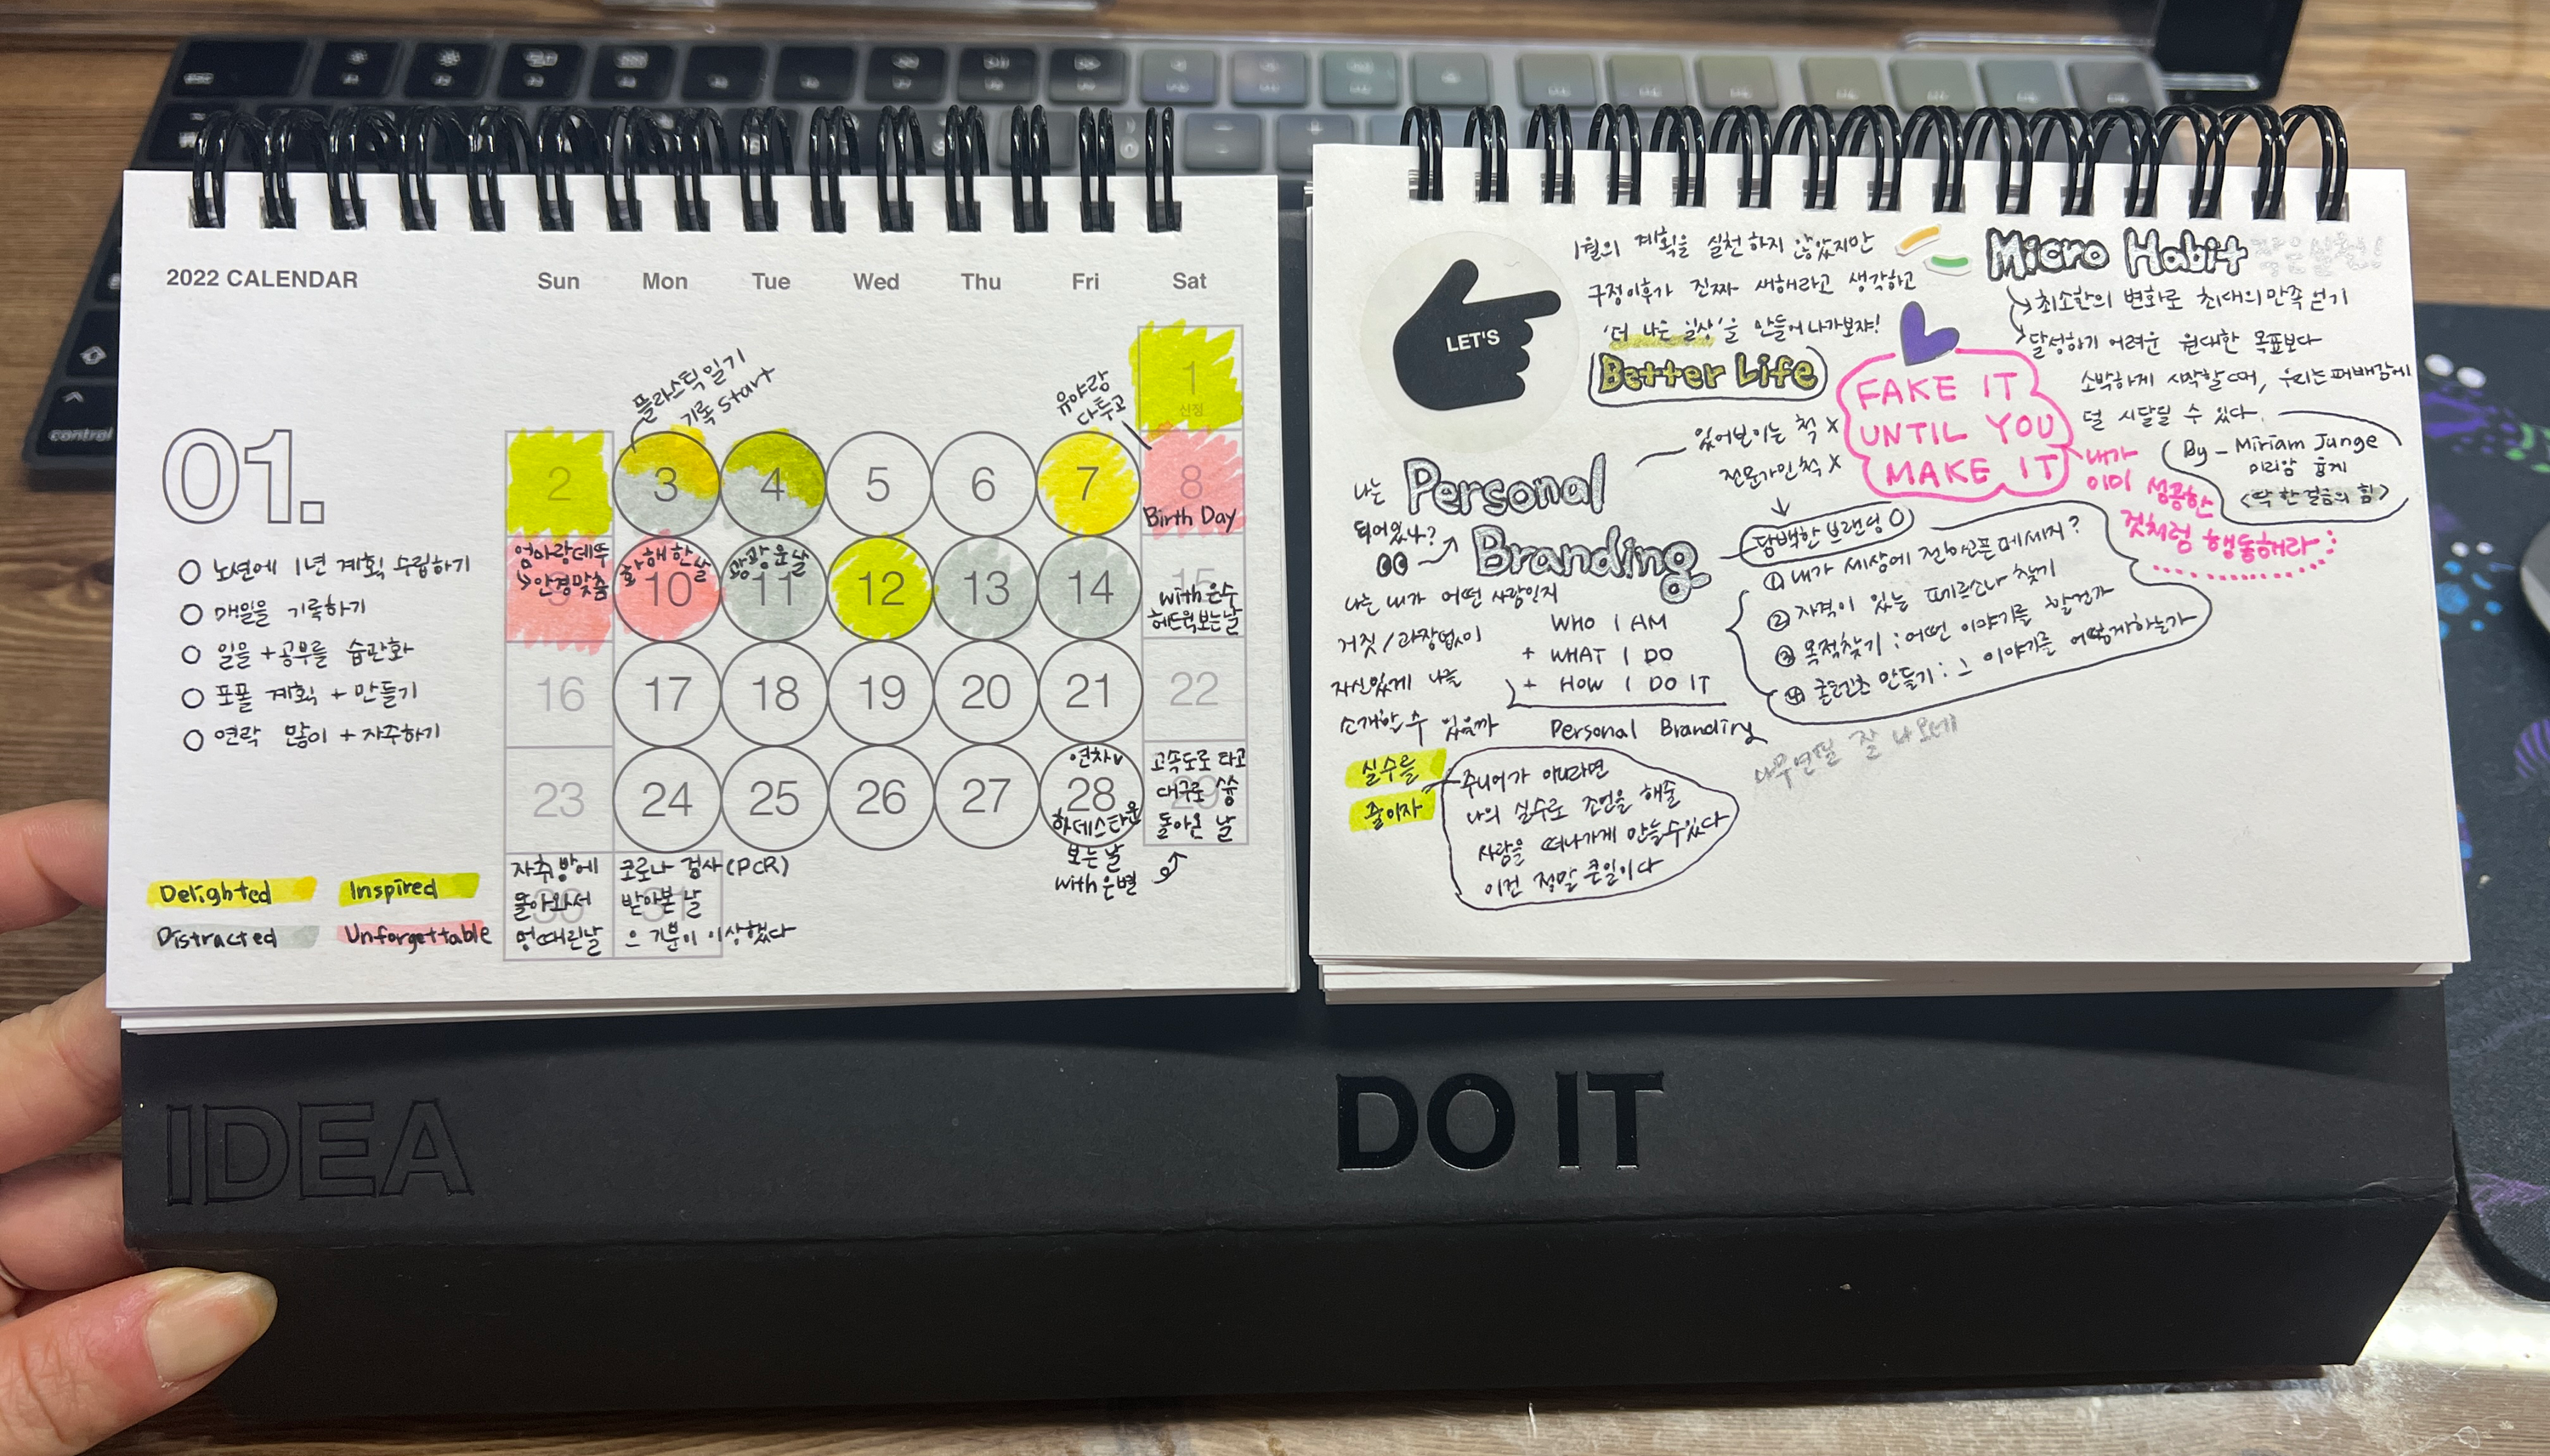 2022 CALENDAR
Sun Mon Tue Wed Thu Fri Sat
01.
노션에 1년 계획 수립하기
매일을 기록하기
일을 + 공부를 습관화
포폴 계획 + 만들기
연락 많이 + 자주하기
Delighted
Inspired
Distracted
Unforgettable
1
신정
플라스틱 일기
기록 start
유야랑
다투고
2 3 4 5 6 7 8
Birth Day
엄마랑데뚜
안경맞춤
9
화해한날
10
펑펑 운날
11 12 13 14 15
with 은수
헤드윅보는날
16 17 18 19 20 21 22
23 24 25 26 27
연차v
28
하데스타운
보는날
with 은별
고속도로 타고
대구로 슝
돌아온 날
29
자취방에
돌아와서
멍때린날
30
코로나 검사(PCR)
받아본 날
으 기분이 이상했다
31
LET'S
1월의 계획을 실천하지 않았지만
구정이후가 진짜 새해라고 생각하고
'더 나은 일상'을 만들어 나가보쟈!
Better Life
Micro Habit 작은실천!
최소한의 변화로 최대의만족 얻기
달성하기 어려운 원대한 목표보다
소박하게 시작할때, 우리는 패배감에
덜 시달릴 수 있다.
By - Miriam Junge
미리암 융게
<딱 한 걸음의 힘>
FAKE IT
UNTIL YOU
MAKE IT
내가
이미 성공한
것처럼 행동해라
나는
되어있나?
Personal
Branding
있어보이는 척 X
전문가인척 X
담백한 브랜딩 O
① 내가 세상에 전하고픈 메세지?
② 자격이 있는 페르소나 찾기
③ 목적찾기 : 어떤 이야기를 할건가
④ 콘텐츠 만들기 : 그 이야기를 어떻게하는가
나는 내가 어떤 사람인지
거짓/과장없이
자신있게 나를
소개할수 있을까
WHO I AM
+ WHAT I DO
+ HOW I DO IT
Personal Branding
나무연필 잘 나오네
실수를
줄이자
주니어가 아니라면
나의 실수로 조언을 해줄
사람을 떠나가게 만들수있다
이건 정말 큰일이다
IDEA
DO IT
control